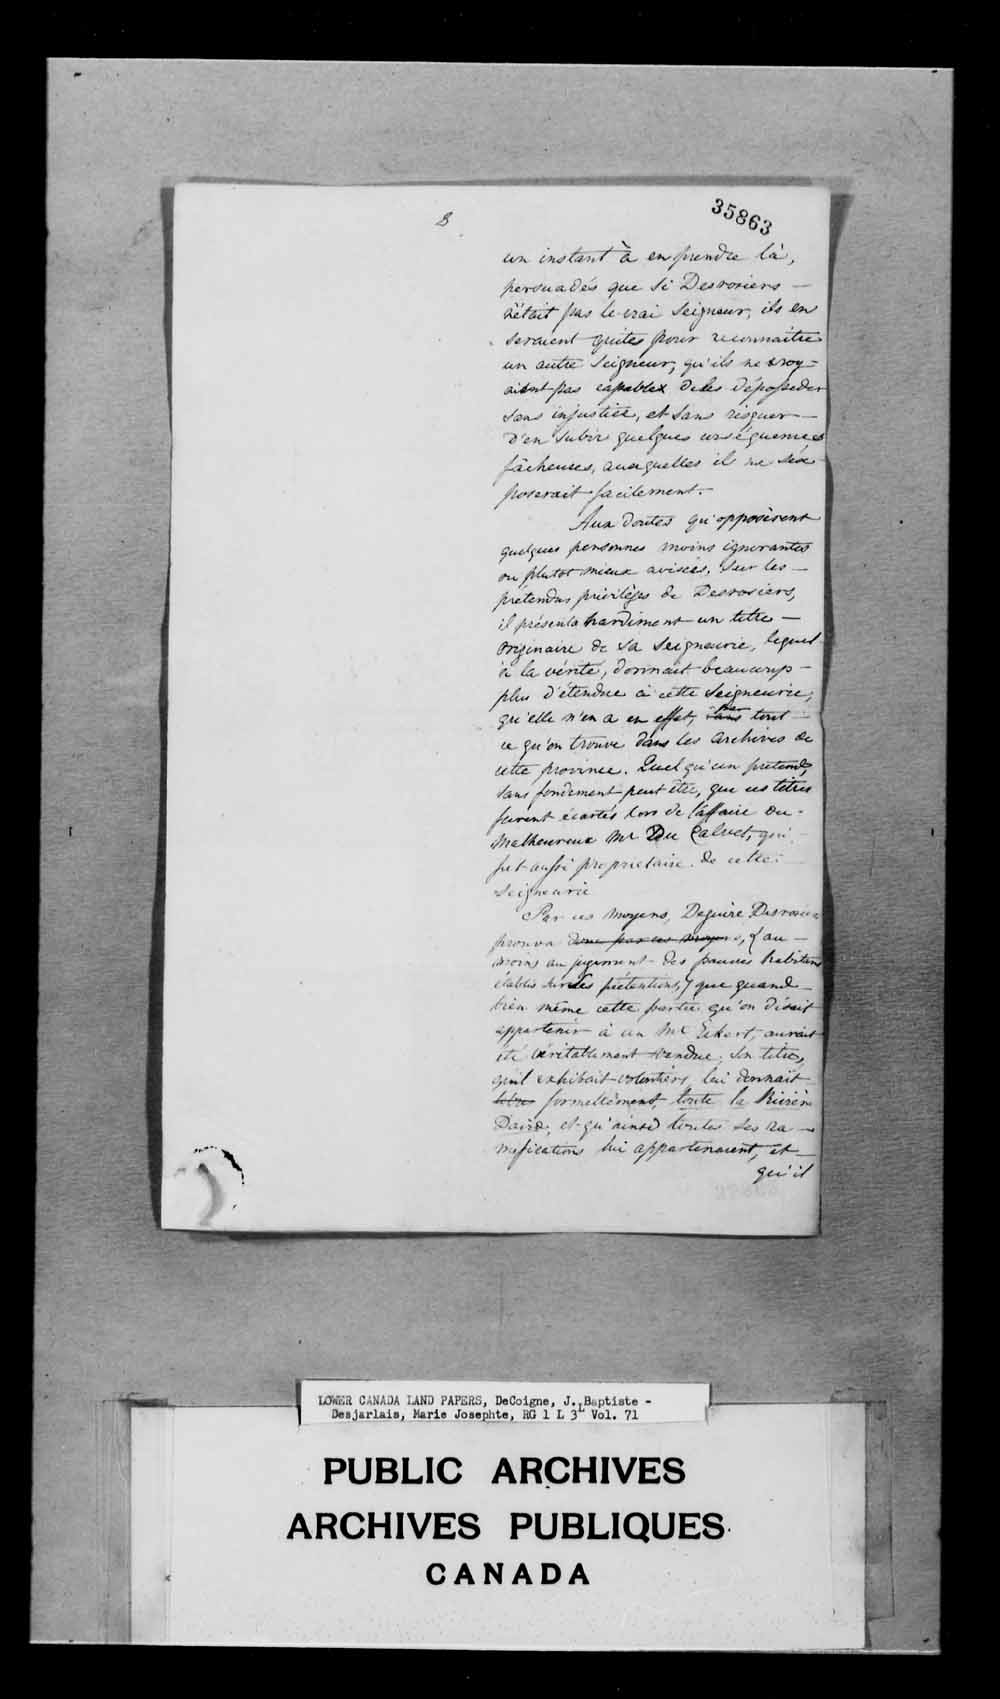 8
35863
un instant à en prendre là,
persuadés que si Desrosiers —
n'était pas le vrai Seigneur, ils en
seraient quites pour reconnaitre
un autre Seigneur, qu'ils ne croy=
aient pas capable de les déposseder
sans injustice, et sans risquer —
d'en subir quelques conséquences
fâcheuses, auxquelles il ne s'éx
poserait facilement.
Aux doutes qu'opposèrent
quelques personnes moins ignorantes
ou plutot mieux avisées, sur les —
prétendus privilèges de Desrosiers,
il présenta hardiment un titre —
originaire de sa Seigneurie, lequel
à la vérité, donnait beaucoup —
plus d'étendue à cette Seigneurie,
qu'elle n'en a en effet, par tout
ce qu'on trouve dans les Archives de
cette province. Quelqu'un prétend,
sans fondement peut être, que ces titres
furent écartés lors de l'affaire du
Malheureux Mr Du Calvet, qui
fut aussi proprietaire de cette
Seigneurie
Par ces moyens, Deguire Desrosiers
prouva donc par ces moyens, (au —
moins au jugement des pauvres habitans
établis sur les prétentions,) que quand
bien même cette partie qu'on disait
appartenir à un Mr Ekert, aurait
été véritablement vendue, son titre,
qu'il exhibait volontiers, lui donnait
formellement, toute la Rivière
David, et qu'ainsi toutes ses ra —
mifications lui appartenaient, et —
qu'il
LOWER CANADA LAND PAPERS, DeCoigne, J. Baptiste -
Desjarlais, Marie Josephte, RG 1 L 3L Vol. 71
PUBLIC ARCHIVES
ARCHIVES PUBLIQUES
CANADA